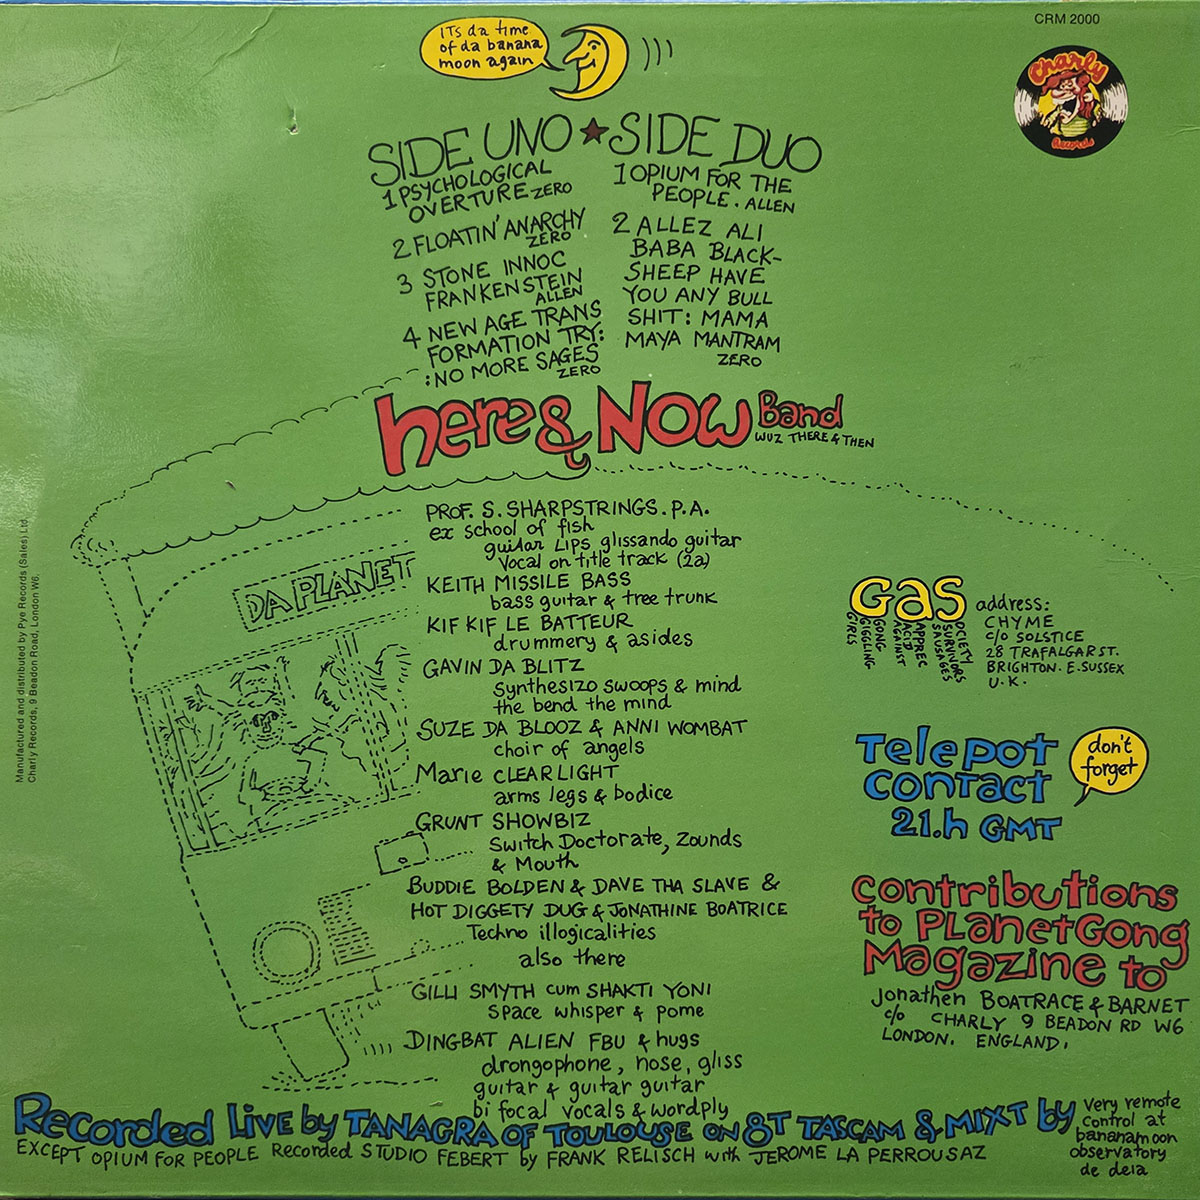 CRM 2000
Charly
Records
ITs da time
of da banana
moon again
SIDE UNO ★ SIDE DUO
1 PSYCHOLOGICAL
OVERTURE ZERO
2 FLOATIN' ANARCHY
ZERO
3 STONE INNOC
FRANKENSTEIN
ALLEN
4 NEW AGE TRANS
FORMATION TRY:
:NO MORE SAGES
ZERO
1 OPIUM FOR THE
PEOPLE. ALLEN
2 ALLEZ ALI
BABA BLACK-
SHEEP HAVE
YOU ANY BULL
SHIT: MAMA
MAYA MANTRAM
ZERO
here & NOW Band
WUZ THERE & THEN
PROF. S. SHARPSTRINGS. P.A.
ex school of fish
guitar LIPS glissando guitar
Vocal on title track (2a)
KEITH MISSILE BASS
bass guitar & tree trunk
KIF KIF LE BATTEUR
drummery & asides
GAVIN DA BLITZ
synthesizo swoops & mind
the bend the mind
SUZE DA BLOOZ & ANNI WOMBAT
choir of angels
Marie CLEARLIGHT
arms legs & bodice
GRUNT SHOWBIZ
Switch Doctorate, Zounds
& Mouth
BUDDIE BOLDEN & DAVE THA SLAVE &
HOT DIGGETY DUG & JONATHINE BOATRICE
Techno illogicalities
also there
GILLI SMYTH cum SHAKTI YONI
space whisper & pome
DINGBAT ALIEN FBU & hugs
drongophone, nose, gliss
guitar & guitar guitar
bi focal vocals & wordply
DA PLANET
GaS address:
CHYME
c/o SOLSTICE
28 TRAFALGAR ST.
BRIGHTON. E. SUSSEX
U.K.
GONG
GIGGLING
GIRLS
APPREC
ACID
AGAINST
SOCIETY
SURVIVORS
SAUSAGES
Telepot
contact
21.h GMT
don't
forget
contributions
to PLanetGong
Magazine to
Jonathen BOATRACE & BARNET
c/o CHARLY 9 BEADON RD W6
LONDON. ENGLAND.
Recorded Live by TANAGRA OF TOULOUSE ON 8T TASCAM & MIXT by
very remote
control at
bananamoon
observatory
de deia
EXCEPT OPIUM FOR PEOPLE Recorded STUDIO FEBERT by FRANK RELISCH with JEROME LA PERROUSAZ
Manufactured and distributed by Pye Records (Sales) Ltd.
Charly Records, 9 Beadon Road, London W6.